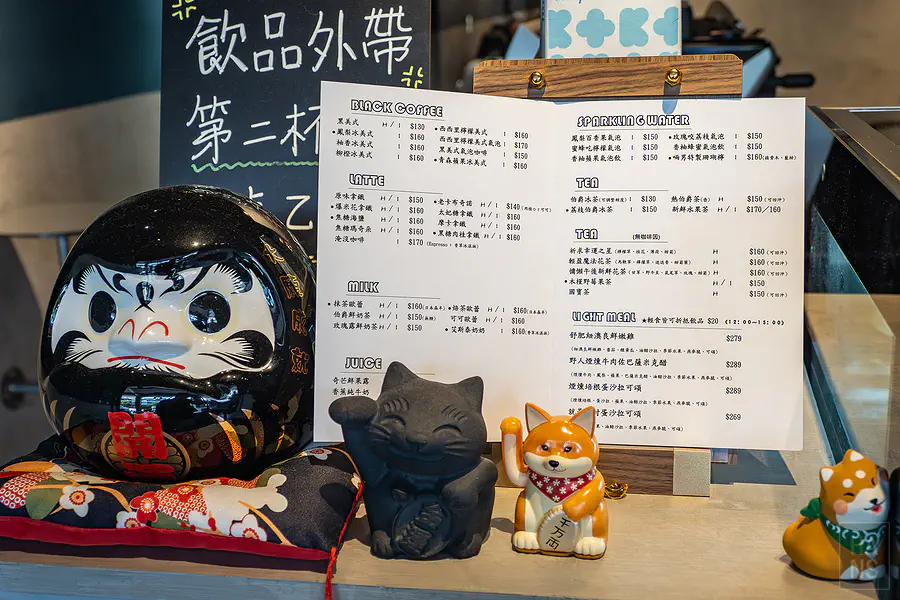 飲品外帶
第二杯
BLACK COFFEE
黑美式 H / I $130
●鳳梨冰美式 I $160
柚香冰美式 I $160
柳橙冰美式 I $160
●西西里檸檬美式 I $160
西西里檸檬美式氣泡 I $170
黑美式氣泡咖啡 I $150
●青森蘋果冰美式 I $160
LATTE
原味拿鐵 H / I $150
●爆米花拿鐵 H / I $160
●焦糖海鹽 H / I $160
焦糖瑪奇朵 H / I $160
淹沒咖啡 I $170 (Espresso+香草冰淇淋)
●老卡布奇諾 H / I $140
太妃糖拿鐵 H / I $160
摩卡拿鐵 H / I $160
●黑糖肉桂拿鐵 H / I $160
MILK
●抹茶歐蕾 H / I $160
伯爵鮮奶茶 H / I $150
玫瑰露鮮奶茶 H / I $150
●焙茶歐蕾 H / I $160
可可歐蕾 H / I $160
●艾斯泰奶奶 I $160
JUICE
奇芒鮮果露
香蕉純牛奶
SPARKLING WATER
鳳梨百香果氣泡 I $150
蜜蜂吃檸檬氣泡 I $150
香柚蘋果氣泡飲 I $150
●玫瑰吃荔枝氣泡 I $150
香柚蜂蜜氣泡飲 I $150
●嗨男特製珊瑚檸 I $160
TEA
伯爵冰茶 I $130
●荔枝伯爵冰茶 I $150
熱伯爵茶 H $150 (可回沖)
新鮮水果茶 H / I $170/160
TEA (無咖啡因)
祈求幸運之星 H $160 (可回沖)
輕盈魔法花茶 H $160 (可回沖)
慵懶午後新鮮花茶 H $160 (可回沖)
●木槿野莓果茶 H / I $150
國寶茶 H $150 (可回沖)
LIGHT MEAL ★輕食皆可折抵飲品 $20 (12:00~15:00)
舒肥細澳良鮮嫩雞 $279
野人煙燻牛肉佐巴薩米克醋 $289
煙燻培根蛋沙拉可頌 $289
蛋沙拉可頌 $269
開
千万両